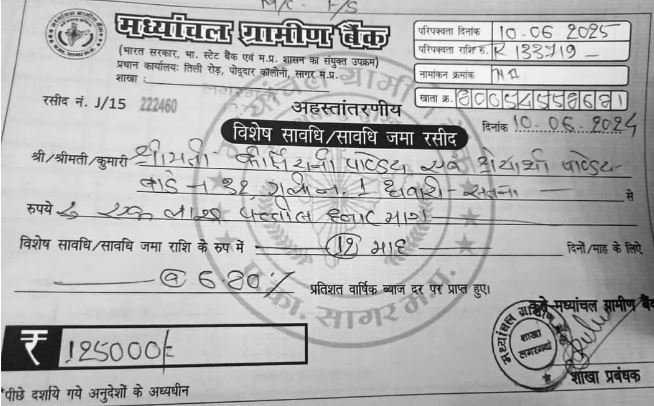 मध्यांचल ग्रामीण बैंक
(भारत सरकार, भा. स्टेट बैंक एवं म.प्र. शासन का संयुक्त उपक्रम)
प्रधान कार्यालय: तिली रोड़, पोद्दार कॉलोनी, सागर म.प्र.
शाखा :
परिपक्वता दिनांक 10.06 2025
परिपक्वता राशि रु. R 133719 -
नामांकन क्रमांक NA
खाता क्र.
रसीद नं. J/15 222460
अहस्तांतरणीय
दिनांक 10.06.2024
विशेष सावधि/सावधि जमा रसीद
श्री/श्रीमती/कुमारी श्रीमती पाण्डेय एवं पाण्डेय
वार्ड न 32 गली न. 1 धवारी - सतना से
रुपये रु एक लाख पच्चीस हजार मात्र
विशेष सावधि/सावधि जमा राशि के रुप में 12 माह दिनों/माह के लिऐ
@ 6.80% प्रतिशत वार्षिक ब्याज दर पर प्राप्त हुए।
कृते-मध्यांचल ग्रामीण बैंक
₹ 125000/-
शाखा प्रबंधक
*पीछे दर्शाये गये अनुदेशों के अध्यधीन